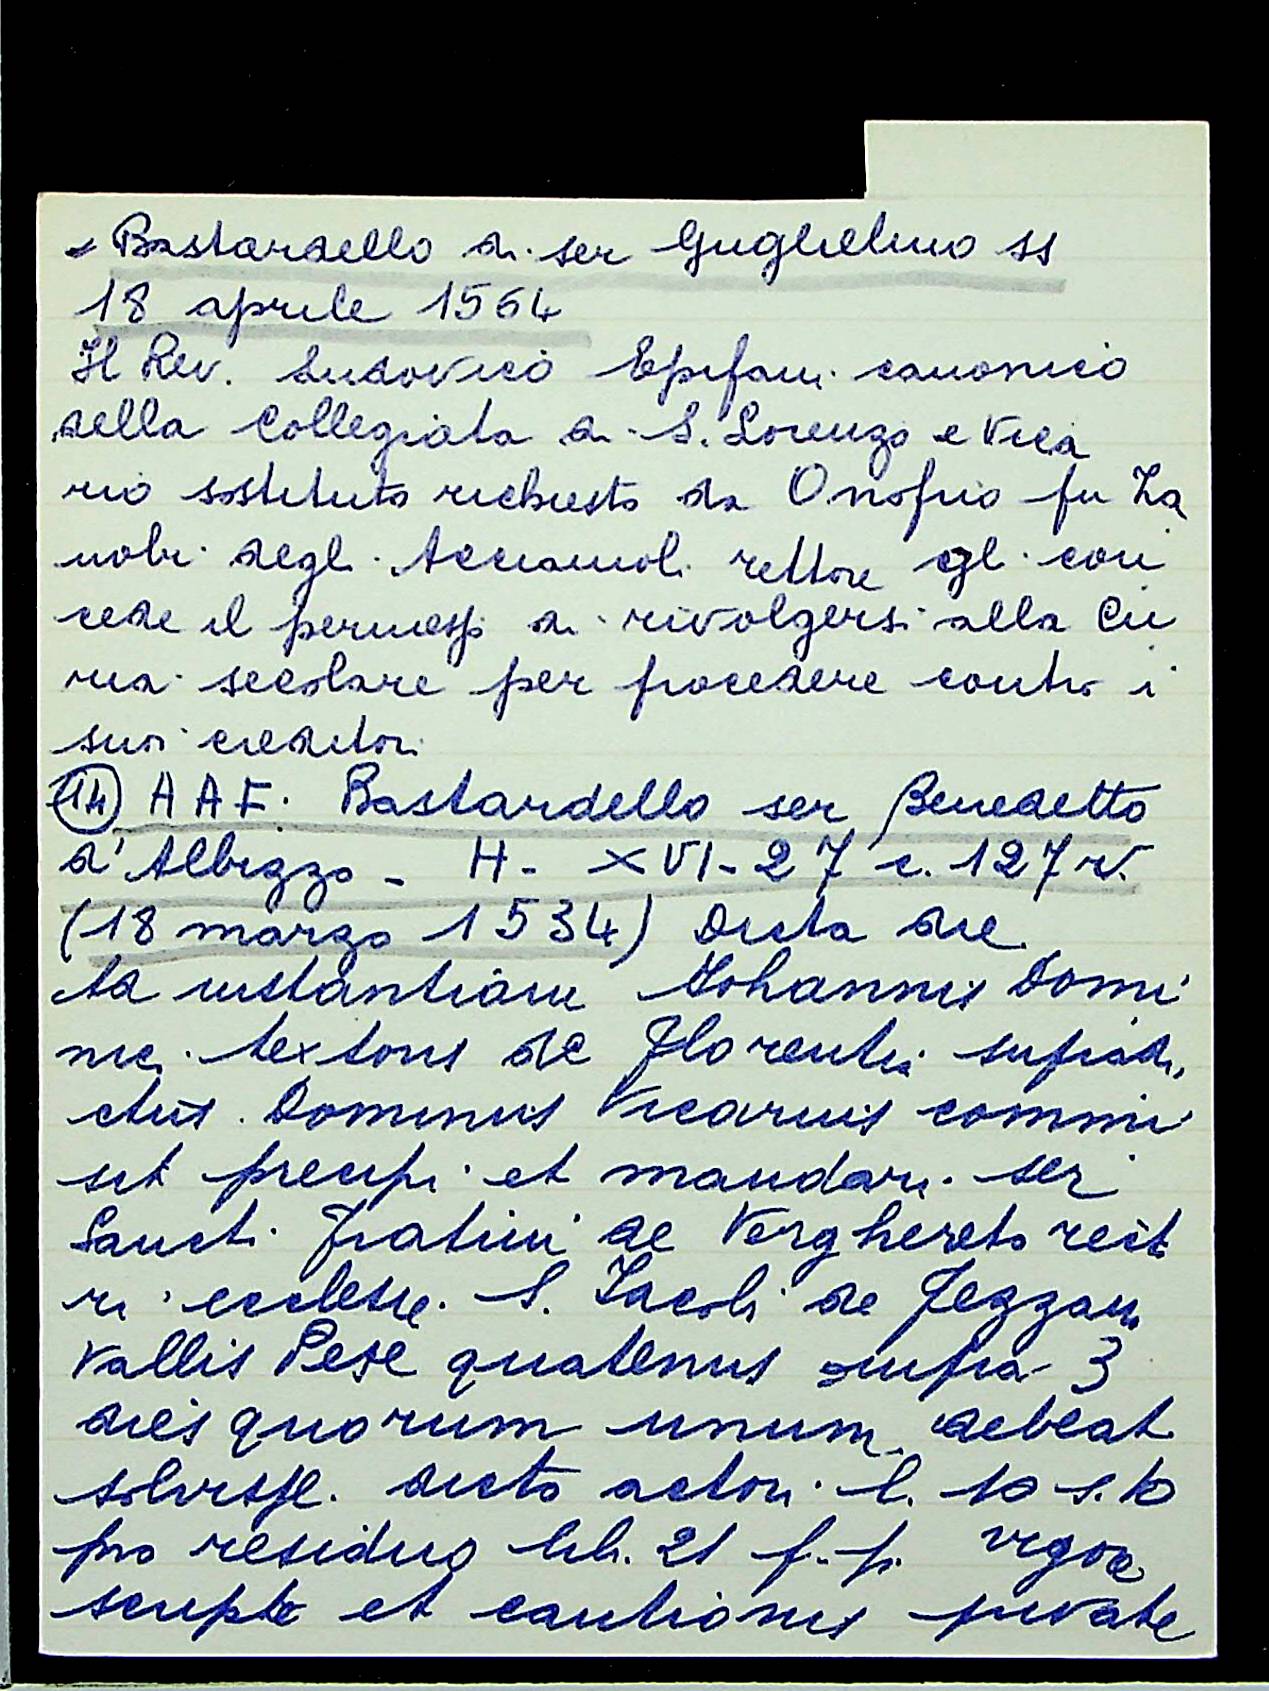 - Bastardello di ser Guglielmo ss
18 aprile 1564
Il Rev. Ludovico Epifani canonico
della Collegiata di S. Lorenzo e Vica
rio sostituto richiesto da Onofrio fu Za
nobi degli Acciauoli rettore gli con
cede il permesso di rivolgersi alla Cu
ria secolare per procedere contro i
suoi creditori
(14) A A F. Bastardello ser Benedetto
d'Albizzo - H - XVI - 27 c. 127 v.
(18 marzo 1534) Dicta die
ad instantiam Johannis Domi
nici textoris de Florentia supradi
ctus Dominus Vicarius commi
sit precipi et mandari ser
Sancti de Verghereto recto
ri ecclesie S. Jacobi de
Vallis Pese quatenus infra 3
dies quorum unum debeat
solvisse dicto actori l. 10 s. 10
pro residuo lib. 21 f. p. vigore
scripte et cautionis private